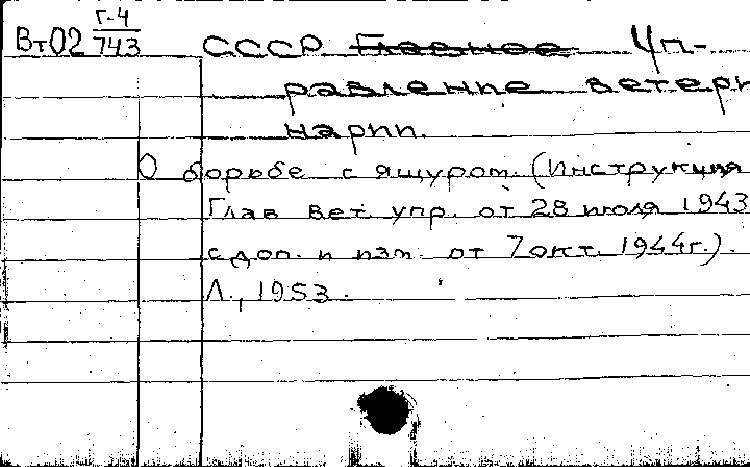 Г-4
Вт02 743 СССР Главное Уп-
равление ветери
нарии.
О борьбе с ящуром. (Инструкция
Глав вет. упр. от 28 июля 1943
с доп. и изм. от 7 окт. 1944г.).
Л., 1953.